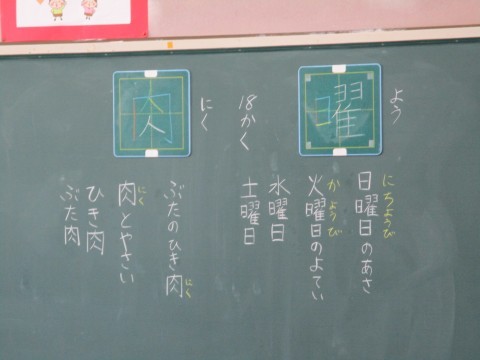 曜
よう
18かく
にちようび
日曜日のあさ
かようび
火曜日のよてい
水曜日
土曜日
肉
にく
ぶたのひき肉
にく
肉とやさい
にく
ひき肉
ぶた肉